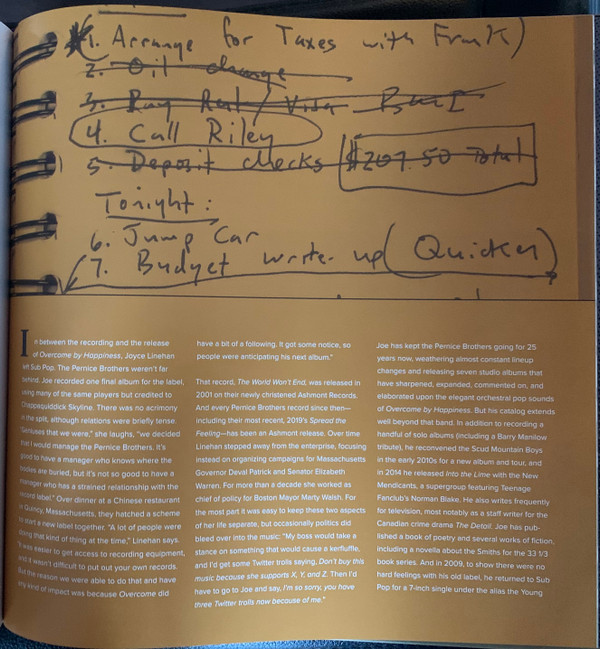 1. Arrange for Taxes with Frank)
2. Oil change
3. Pay Rent / Visa
4. Call Riley
5. Deposit checks $207.50 Total
Tonight:
6. Jump Car
7. Budget write-up (Quicken)
In between the recording and the release
of Overcome by Happiness, Joyce Linehan
left Sub Pop. The Pernice Brothers weren't far
behind. Joe recorded one final album for the label,
using many of the same players but credited to
Chappaquiddick Skyline. There was no acrimony
in the split, although relations were briefly tense.
"Geniuses that we were," she laughs, "we decided
that I would manage the Pernice Brothers. It's
good to have a manager who knows where the
bodies are buried, but it's not so good to have a
manager who has a strained relationship with the
record label." Over dinner at a Chinese restaurant
in Quincy, Massachusetts, they hatched a scheme
to start a new label together. "A lot of people were
doing that kind of thing at the time," Linehan says.
"It was easier to get access to recording equipment,
and it wasn't difficult to put out your own records.
But the reason we were able to do that and have
any kind of impact was because Overcome did
have a bit of a following. It got some notice, so
people were anticipating his next album."
That record, The World Won't End, was released in
2001 on their newly christened Ashmont Records.
And every Pernice Brothers record since then—
including their most recent, 2019's Spread the
Feeling—has been an Ashmont release. Over time
Linehan stepped away from the enterprise, focusing
instead on organizing campaigns for Massachusetts
Governor Deval Patrick and Senator Elizabeth
Warren. For more than a decade she worked as
chief of policy for Boston Mayor Marty Walsh. For
the most part it was easy to keep these two aspects
of her life separate, but occasionally politics did
bleed over into the music: "My boss would take a
stance on something that would cause a kerfluffle,
and I'd get some Twitter trolls saying, Don't buy this
music because she supports X, Y, and Z. Then I'd
have to go to Joe and say, I'm so sorry, you have
three Twitter trolls now because of me."
Joe has kept the Pernice Brothers going for 25
years now, weathering almost constant lineup
changes and releasing seven studio albums that
have sharpened, expanded, commented on, and
elaborated upon the elegant orchestral pop sounds
of Overcome by Happiness. But his catalog extends
well beyond that band. In addition to recording a
handful of solo albums (including a Barry Manilow
tribute), he reconvened the Scud Mountain Boys
in the early 2010s for a new album and tour, and
in 2014 he released Into the Lime with the New
Mendicants, a supergroup featuring Teenage
Fanclub's Norman Blake. He also writes frequently
for television, most notably as a staff writer for the
Canadian crime drama The Detail. Joe has pub-
lished a book of poetry and several works of fiction,
including a novella about the Smiths for the 33 1/3
book series. And in 2009, to show there were no
hard feelings with his old label, he returned to Sub
Pop for a 7-inch single under the alias the Young